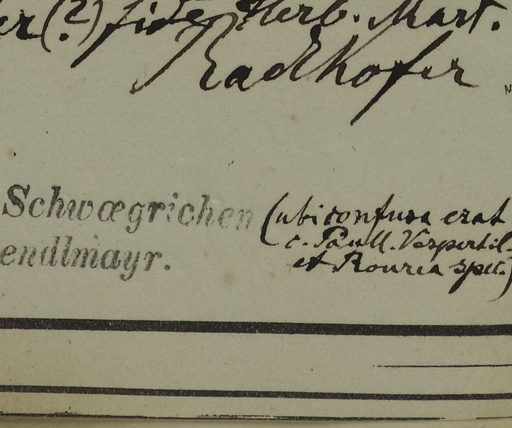 er(?) fide Herb. Mart.
Radlkofer
Schwœgrichen (ubi confusa erat
c. Paull. Vespertil.
endlmayr. et Rourea spec.)